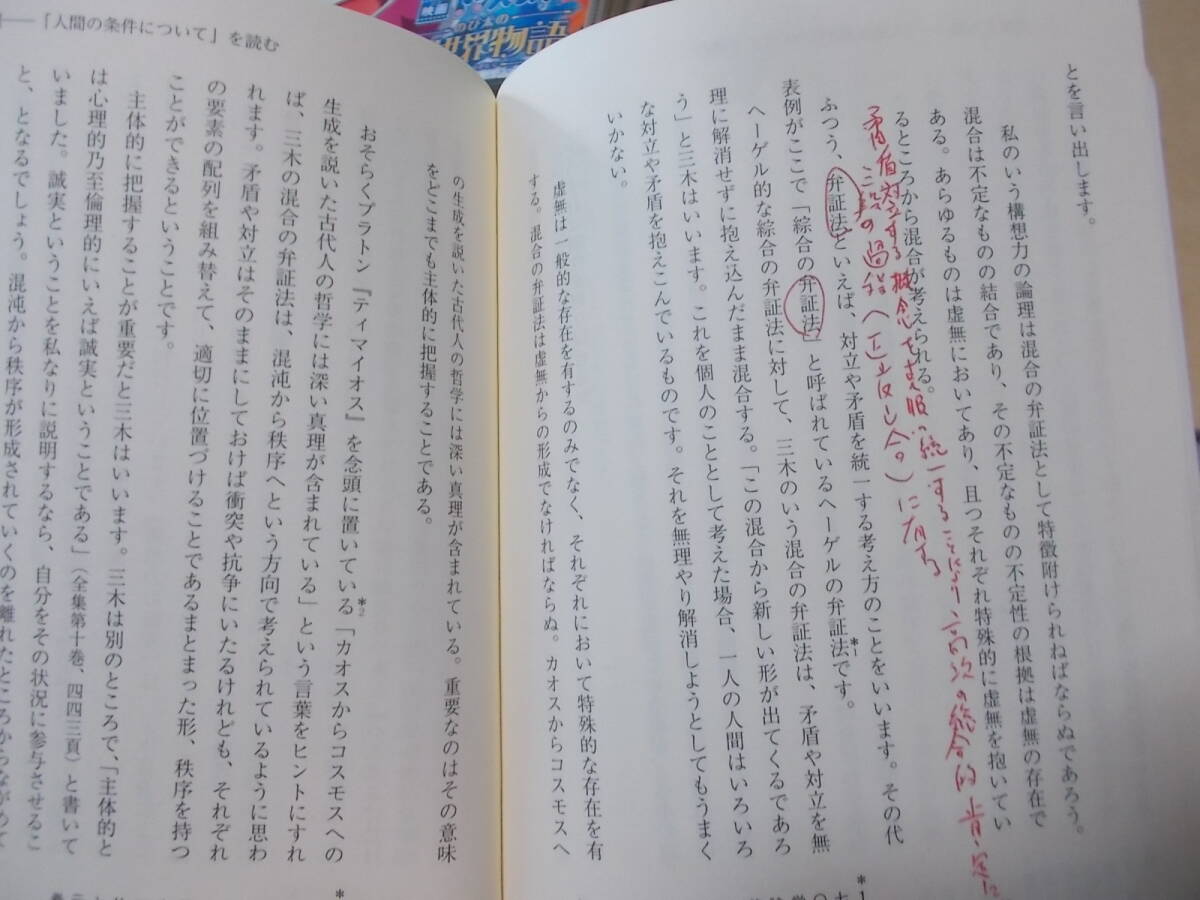 とを言い出します。
私のいう構想力の論理は混合の弁証法として特徴附けられねばならぬであろう。
混合は不定なものの結合であり、その不定なものの不定性の根拠は虚無の存在で
ある。あらゆるものは虚無においてあり、且つそれぞれ特殊的に虚無を抱いてい
るところから混合が考えられる。
矛盾対立する概念を克服 統一することにより高次の総合的肯定に
三段の過程へ(正反合)に
ふつう、弁証法といえば、対立や矛盾を統一する考え方のことをいいます。その代
表例がここで「綜合の弁証法」と呼ばれているヘーゲルの弁証法です。*1
ヘーゲル的な綜合の弁証法に対して、三木のいう混合の弁証法は、矛盾や対立を無
理に解消せずに抱え込んだまま混合する。「この混合から新しい形が出てくるであろ
う」と三木はいいます。これを個人のこととして考えた場合、一人の人間はいろいろ
な対立や矛盾を抱えこんでいるものです。それを無理やり解消しようとしてもうまく
いかない。
虚無は一般的な存在を有するのみでなく、それぞれにおいて特殊的な存在を有
する。混合の弁証法は虚無からの形成でなければならぬ。カオスからコスモスへ
*1
「人間の条件について」を読む
の生成を説いた古代人の哲学には深い真理が含まれている。重要なのはその意味
をどこまでも主体的に把握することである。
おそらくプラトン『ティマイオス』を念頭に置いている*2「カオスからコスモスへの
生成を説いた古代人の哲学には深い真理が含まれている」という言葉をヒントにすれ
ば、三木の混合の弁証法は、混沌から秩序へという方向で考えられているように思わ
れます。矛盾や対立はそのままにしておけば衝突や抗争にいたるけれども、それぞれ
の要素の配列を組み替えて、適切に位置づけることであるまとまった形、秩序を持つ
ことができるということです。
主体的に把握することが重要だと三木はいいます。三木は別のところで、「主体的と
は心理的乃至倫理的にいえば誠実ということである」(全集第十巻、四四三頁)と書いて
いました。誠実ということを私なりに説明するなら、自分をその状況に参与させるこ
と、となるでしょう。混沌から秩序が形成されていくのを離れたところからながめて
映画
のび太の
世界物語